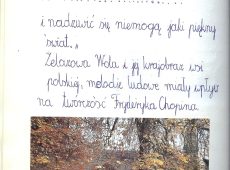 i nadziwić się niemogą jaki piękny
świat."
Żelazowa Wola i jej krajobraz wsi
polskiej, melodie ludowe miały wpływ
na twórczość Fryderyka Chopina